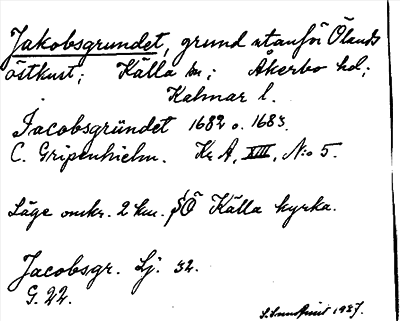 Jakobsgrundet, grund utanför Ölands
östkust; Källa sn; Åkerbo hd;
Kalmar l.
Jacobsgründet 1682 o. 1683.
C. Gripenhielm. Kr A, XIII, N:o 5.
Läge omkr. 2 km. SÖ Källa kyrka.
Jacobsgr. Lj. 32.
G. 22.
1927.